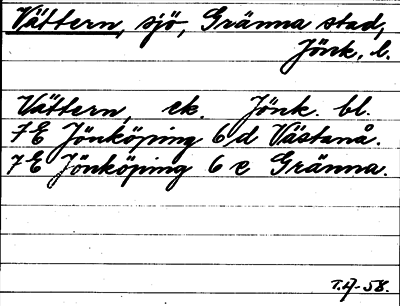 Vättern, sjö, Gränna stad,
Jönk. l.
Vättern, ek. Jönk. bl.
7E Jönköping 6 d Västanå.
7E Jönköping 6 e Gränna.
-58.